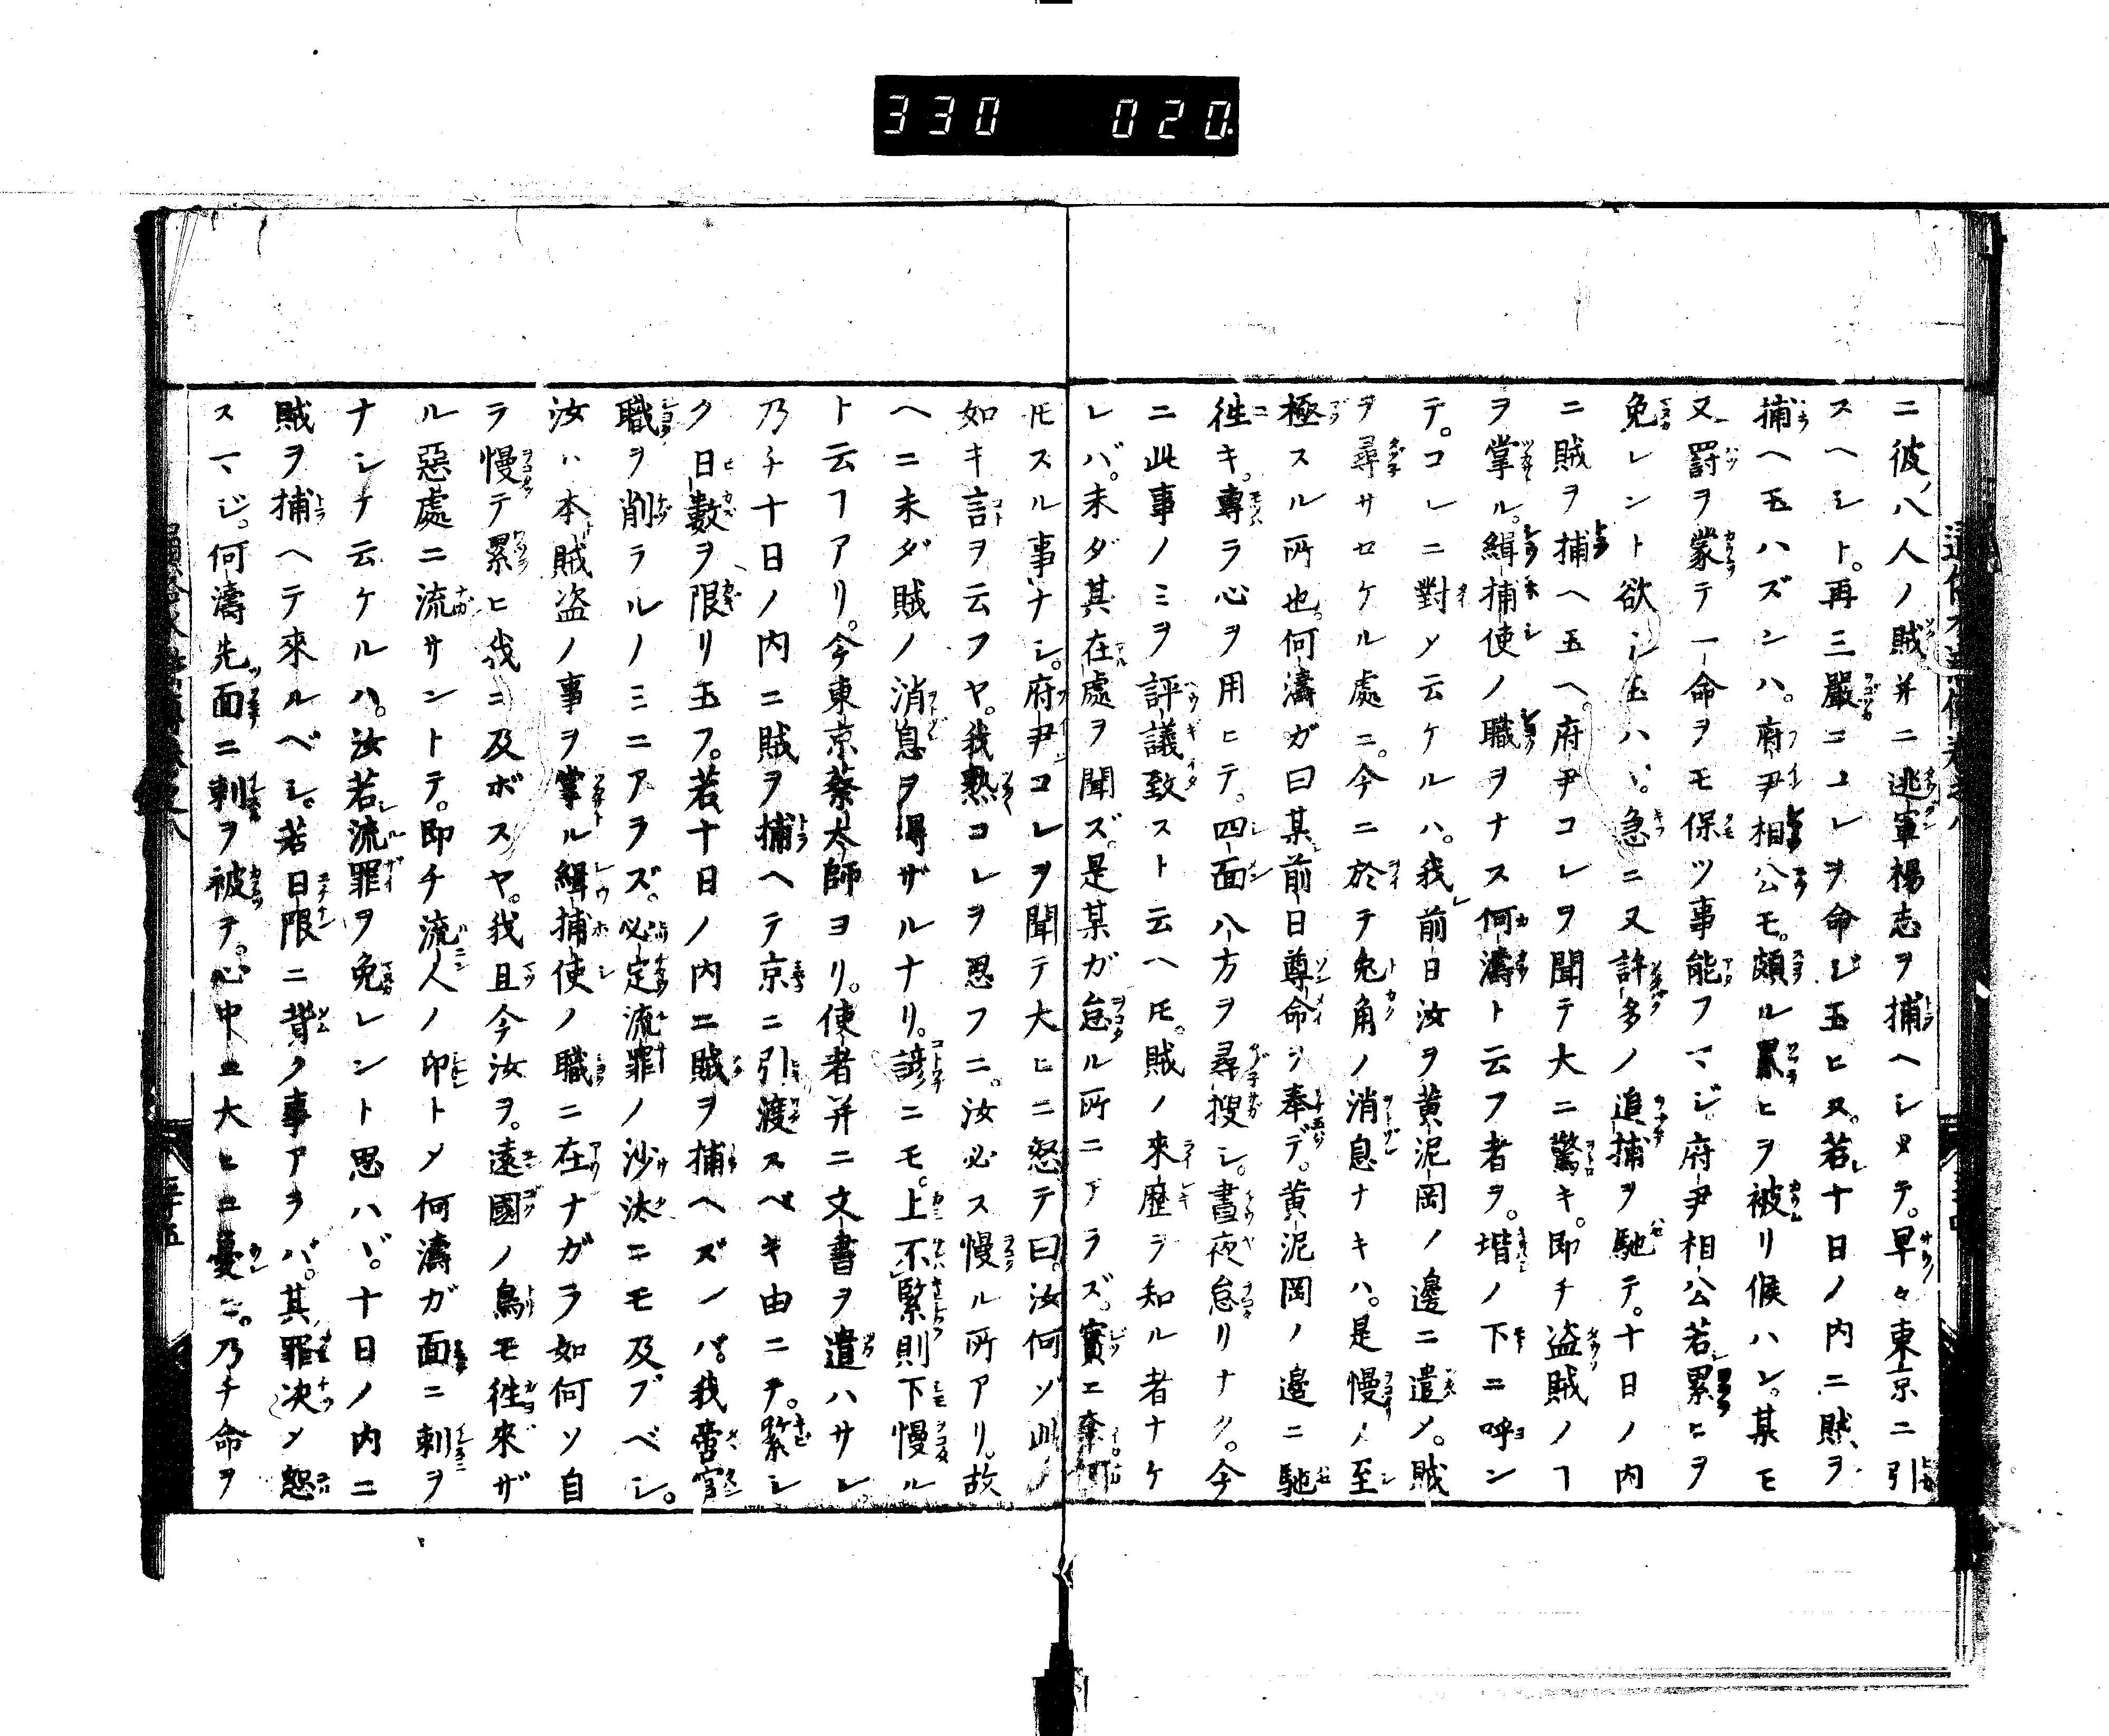 330 020
ニ彼八人ノ賊并ニ逃軍楊志ヲ捕ヘシメテ。早々東京ニ引
スヘシト。再三嚴ニコレヲ命ジ玉ヒヌ。若十日ノ内ニ賊ヲ
捕ヘ玉ハズンハ。府尹相公モ。頗ル累ヒヲ被リ候ハン。某モ
又罸ヲ蒙テ一命ヲモ保ツ事能フマジ府尹相公若累ヒヲ
免レント欲シ玉ハヾ。急ニ又許多ノ追捕ヲ馳テ。十日ノ内
ニ賊ヲ捕ヘ玉ヘ。府尹コレヲ聞テ大ニ驚キ。即チ盗賊ノヿ
ヲ掌ル。緝捕使ノ職ヲナス何濤ト云フ者ヲ。堦ノ下ニ呼ン
テ。コレニ對メ云ケルハ。我前日汝ヲ黄泥岡ノ邊ニ遣メ。賊
ヲ尋サセケル處ニ。今ニ於テ兔角ノ消息ナキハ。是慢ノ至
極スル所也。何濤ガ曰某前日尊命ヲ奉デ。黄泥岡ノ邉ニ馳
徃キ。專ラ心ヲ用ヒテ。四面八方ヲ尋搜シ。晝夜怠リナク。今
ニ此事ノミヲ評議致スト云ヘ𪜈。賊ノ來歷ヲ知ル者ナケ
レバ。未ダ其在處ヲ聞ズ。是某ガ怠ル所ニアラズ。實ニ奈何
𪜈スル事ナシ。府尹コレヲ聞テ大ヒニ怒テ曰。汝何ゾ此ノ
如キ言ヲ云フヤ。我熟コレヲ思フニ。汝必ス慢ル所アリ。故
ヘニ未ダ賊ノ消息ヲ得ザルナリ。諺ニモ。上不緊則下慢ル
ト云フヿアリ。今東京蔡太師ヨリ。使者并ニ文書ヲ遣ハサレ
乃チ十日ノ内ニ賊ヲ捕ヘテ京ニ引渡スベキ由ニテ。緊シ
ク日數ヲ限リ玉フ。若十日ノ内ニ賊ヲ捕ヘズンバ。我啻官
職ヲ削ラルノミニアラズ。必定流罪ノ沙汰ニモ及ブベシ。
汝ハ本賊盗ノ事ヲ掌ル緝捕使ノ職ニ在ナガラ如何ソ自
ラ慢テ累ヒ我ニ及ボスヤ。我且今汝ヲ。遠國ノ鳥モ徃來ザ
ル惡處ニ流サントテ。即チ流人ノ印トメ何濤ガ面ニ刺ヲ
ナシテ云ケルハ。汝若流罪ヲ免レント思ハヾ。十日ノ内ニ
賊ヲ捕ヘテ來ルベシ。若日限ニ背ク事アラバ。其罪决メ恕
スマジ。何濤先面ニ刺ヲ被テ。心中ニ大ヒニ憂ニ。乃チ命ヲ